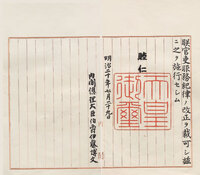 朕官吏服務紀律ノ改正ヲ裁可シ玆
ニ之ヲ施行セシム
睦仁
天皇
御璽
明治二十年七月二十九日
内閣總理大臣伯爵伊藤博文